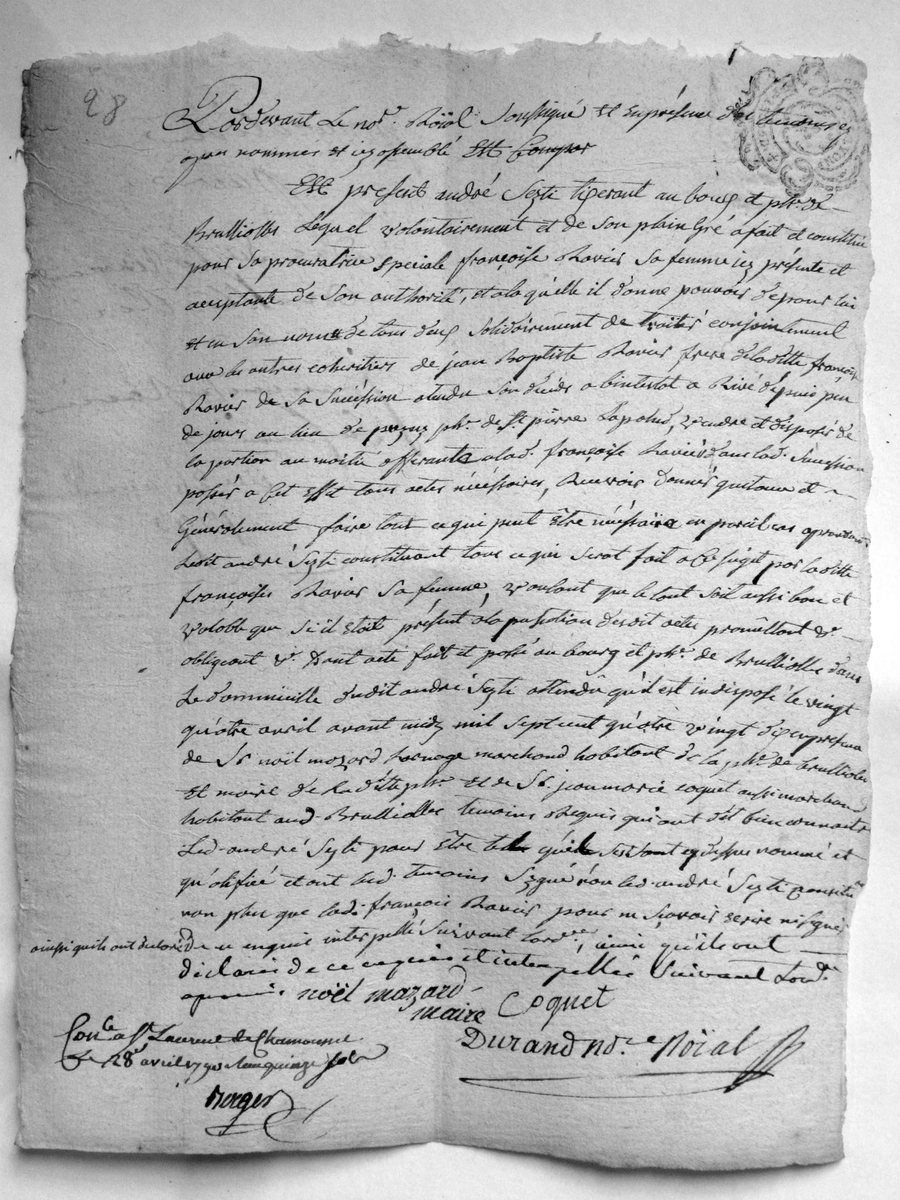 28
Pardevant Le no.re Röial Soussigné et en présence des temoins cy
apres nommés et icy assemblé Est Compar
Est present andré Sezte tisserant au bourg et ph.e de
Brulliolles Lequel volontairement et de son plain Gré a fait et constitué
pour sa procuratrice speciale françoise Ravier sa femme icy présente et
aceptante de son authorité, et a laquelle il donne pouvoir de pour lui
et en son nom de tous deux solidairement de traiter conjointement
avec les autres coheritiers de jean Baptiste Ravier frere de laditte françoise
Ravier de sa succession atendu son décés abintestat arivé depuis peu
de jours au lieu de ph.e de S.t pierre Lapalud, vendre et disposer de
la portion au moitié afferante a lad. françoise Ravier dans lad. sucession
passer a cet effet tous actes nécéssaires, Recevoir donner quitance et
Généralement faire tout ce qui peut être nécéssaire en pareil cas aprouvant
Ledit andré Sezte constituant tous ce qui serat fait a ce sujet par laditte
françoise Ravier sa femme, voulant que le tout soit aussi bon et
valable que s'il étoit présent a la passation desdit actes promettant &.
obligeant &. Dont acte fait et passé au bourg et ph.e de Brulliolle dans
Le dommicille dudit andré Sezte attendû qu'il est indisposé le vingt
quatre avril avant midy mil sept cent quatre vingt dix en présence
de S.r noël mazard menage marchand habitant de la ph.e de Brulliolles
et maire de laditte ph.e et de S.r jean marie coquet aussi marchand
habitant aud. Brulliolles temoins Requis qui ont dit bien connaitre
Led. andré Sezte pour être tel qu'il est cydessus nommé et
qualifié et ont led. temoins signé non led. andré Sezte constituant
non plus que lad. françoise Ravier pour ne sçavoir ecrire ni signer
ainsi qu'ils ont declaré
De ce enquis interpellé suivant Lord.ce, ainsi qu'ils ont
déclarés de ce enquis et interpellés suivant Lord.ce
noël mazard
maire Coquet
Durand no.re Röial
Con.le a S.t Laurent de Chamousset
Le 28 avril 1790 Recu quinze sols
Berger